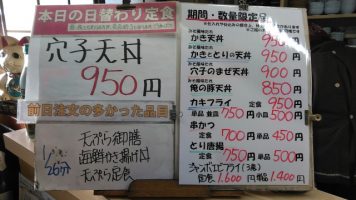 本日の日替わり定食
穴子天丼
950円
前日注文の多かった品目
天ぷら御膳
かき揚げ丼
天ぷら定食
期間・数量限定
かき天丼 950円
かきとりの天丼 950円
穴子のまぜ天丼 900円
俺の豚天丼 850円
カキフライ 定食 950円
単品 並皿 750円 小皿 500円
串かつ
定食 700円 単品 450円
とり唐揚
定食 750円 単品 500円
ジャンボエビフライ(3尾)
定食 1,600円 単品 1,400円